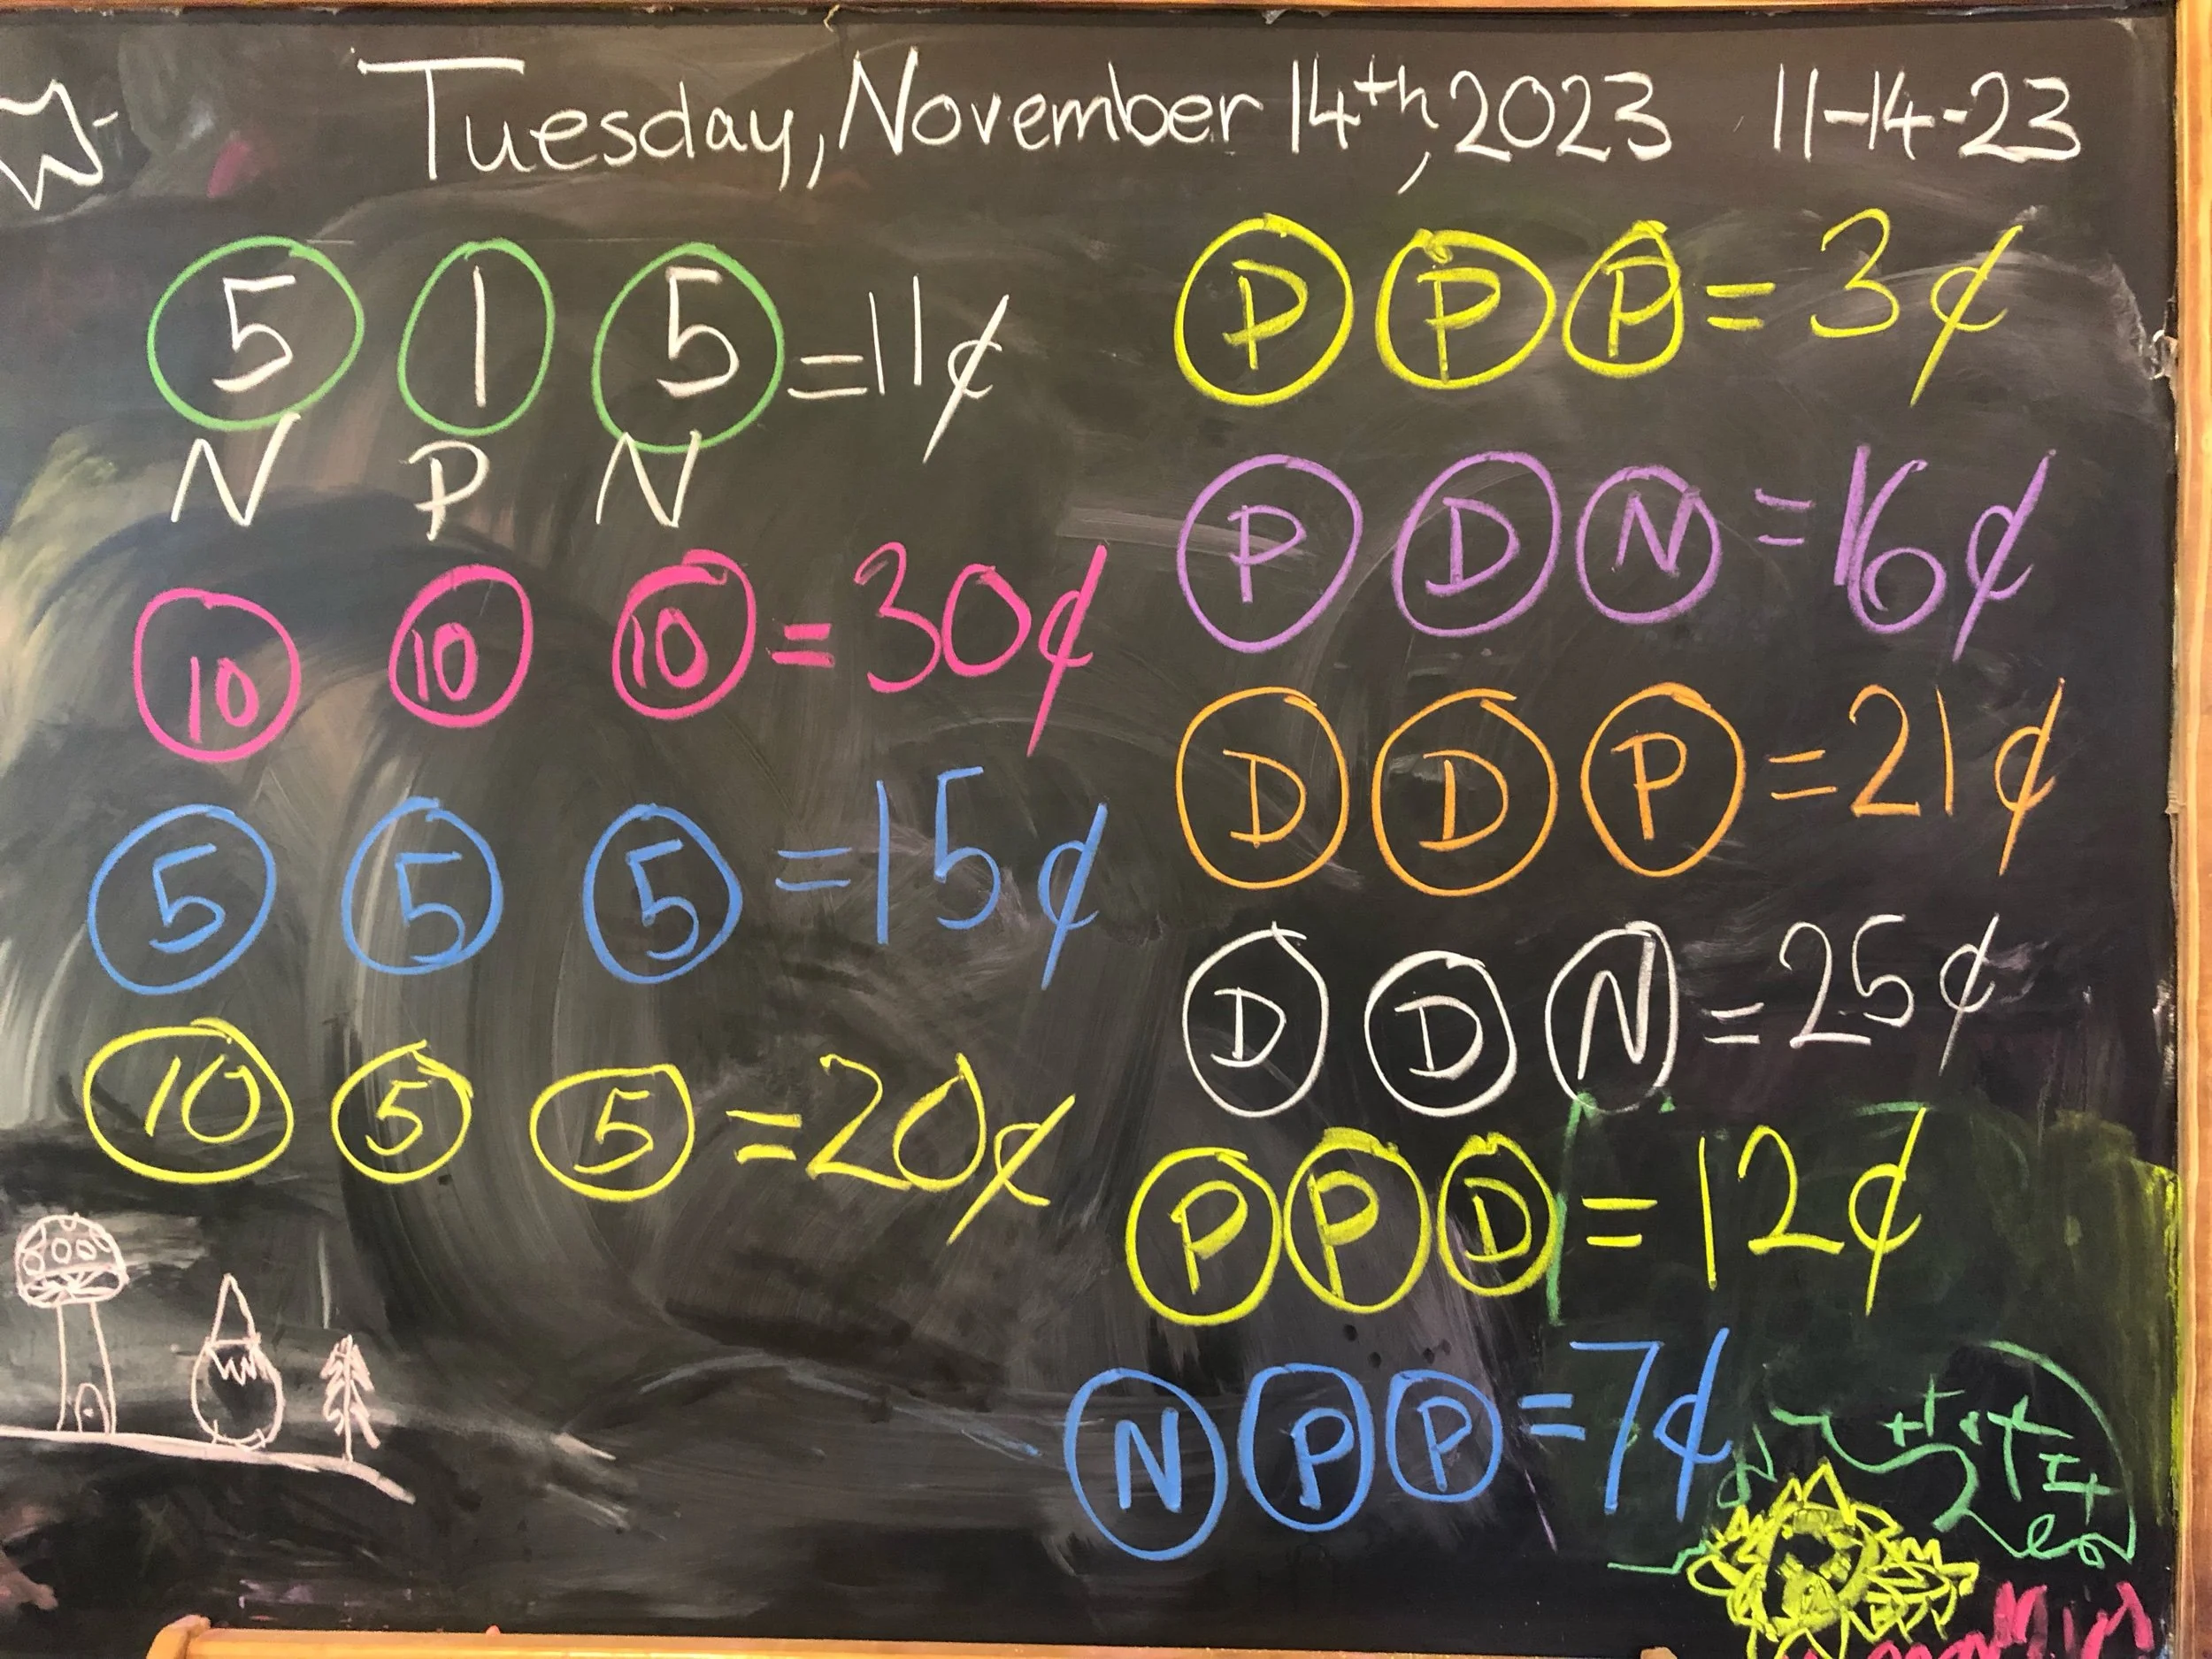 Tuesday, November 14th, 2023 11-14-23
5 1 5 = 11¢
N P N
10 10 10 = 30¢
5 5 5 = 15¢
10 5 5 = 20¢
P P P = 3¢
P D N = 16¢
D D P = 21¢
D D N = 25¢
P P D = 12¢
N P P = 7¢